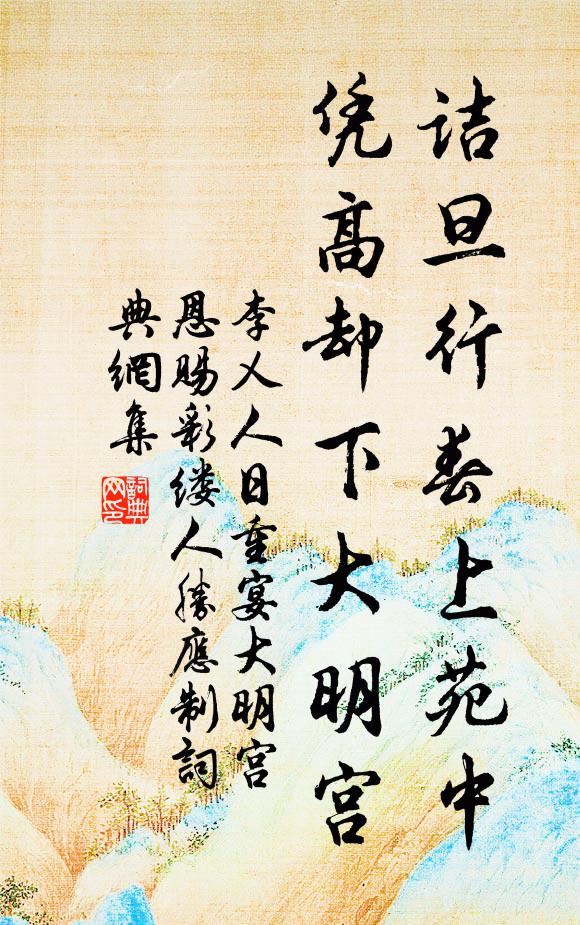 诘旦行春上苑中
凭高却下大明宫
李乂人日重宴大明宫
恩赐彩缕人勝應制詞
典網集
詞典網印